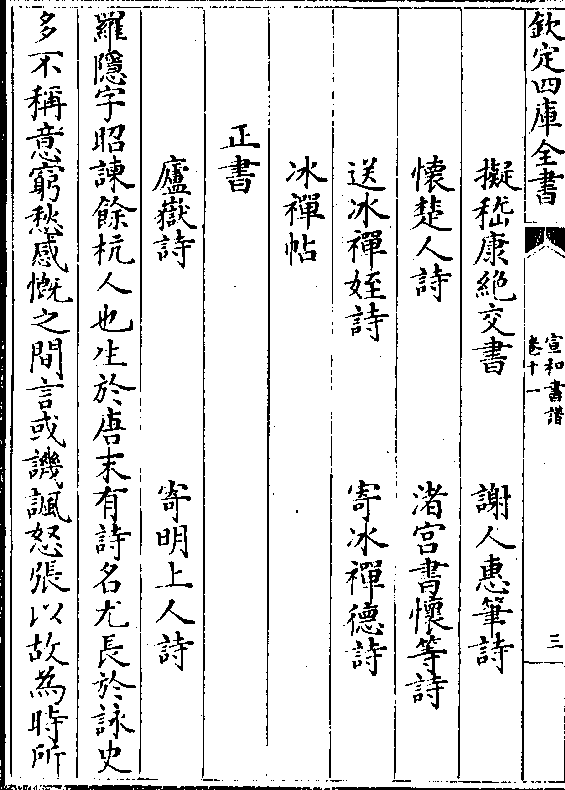 欽定四庫全書
宣和書譜
卷十一
三
擬嵇康絶交書
謝人惠筆詩
懐楚人詩
渚宫書懐等詩
送冰禪姪詩
寄冰禪德詩
冰禪帖
正書
廬嶽詩
寄明上人詩
羅隱字昭諫餘杭人也生於唐末有詩名尤長於詠史
多不稱意窮愁感慨之間言或譏諷怒張以故為時所